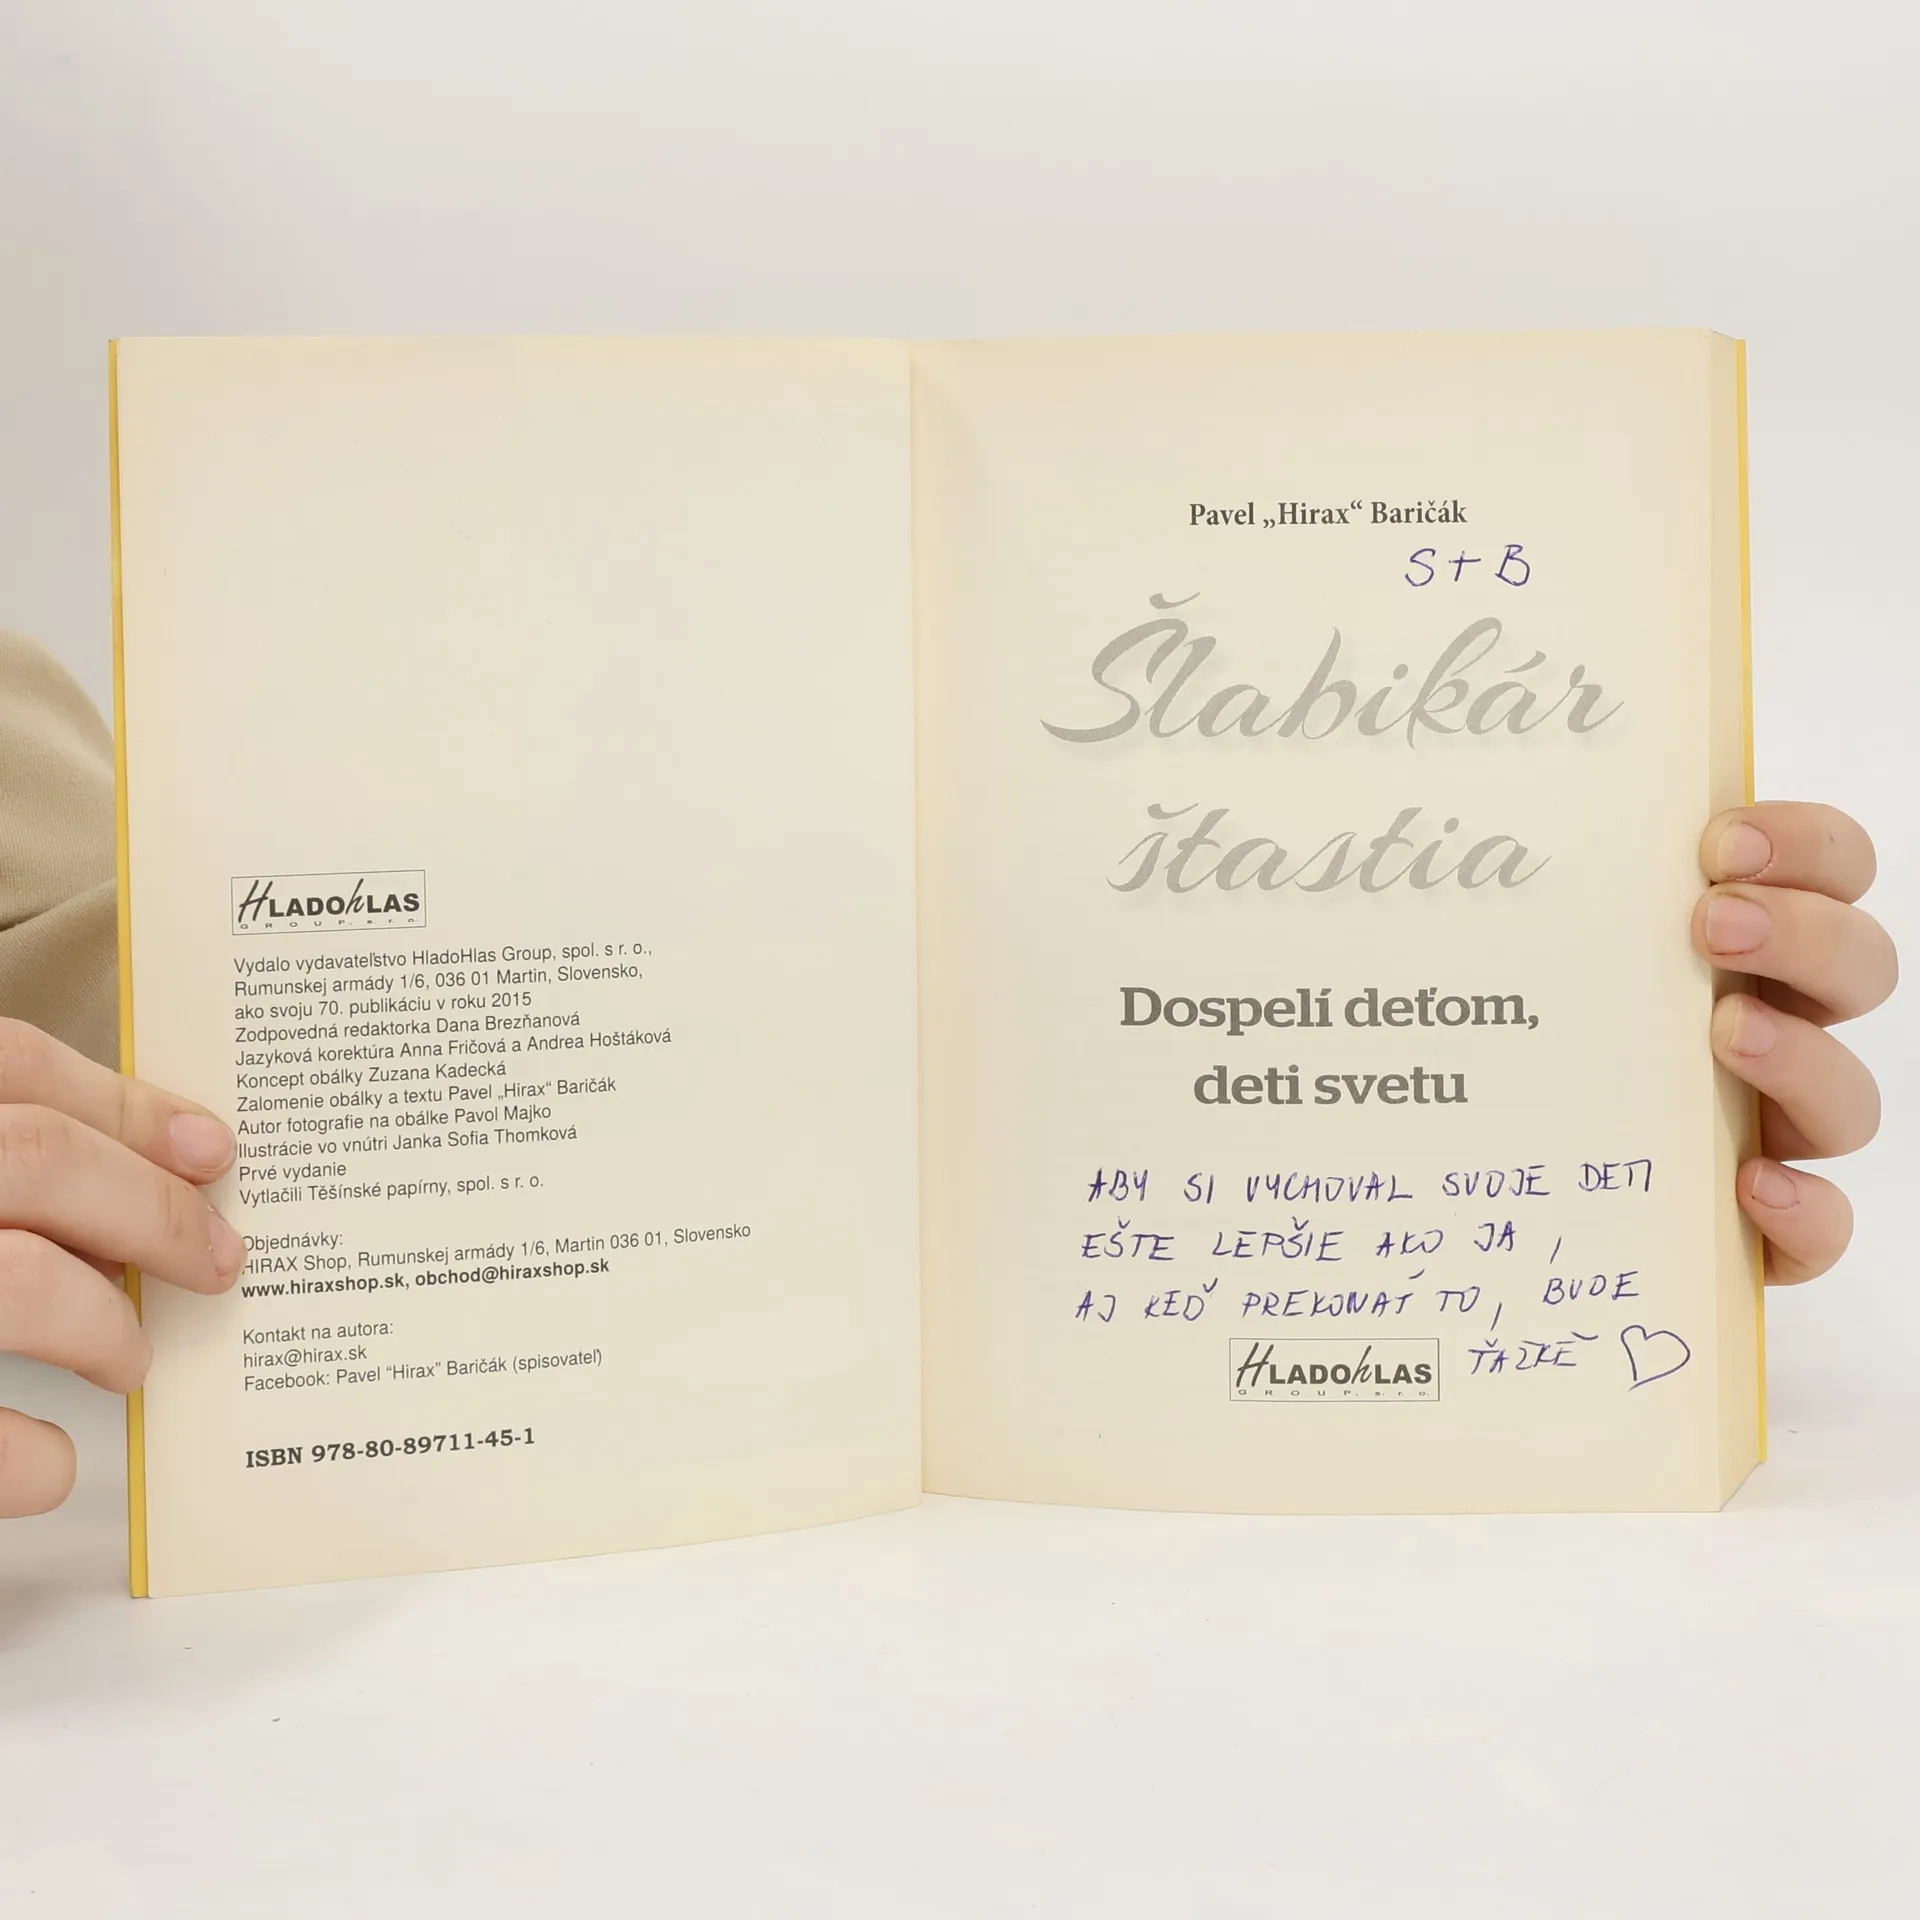 HLADOHLAS
GROUP, s. r. o.
Vydalo vydavateľstvo HladoHlas Group, spol. s r. o.,
Rumunskej armády 1/6, 036 01 Martin, Slovensko,
ako svoju 70. publikáciu v roku 2015
Zodpovedná redaktorka Dana Brezňanová
Jazyková korektúra Anna Fričová a Andrea Hoštáková
Koncept obálky Zuzana Kadecká
Zalomenie obálky a textu Pavel „Hirax“ Baričák
Autor fotografie na obálke Pavol Majko
Ilustrácie vo vnútri Janka Sofia Thomková
Prvé vydanie
Vytlačili Těšínské papírny, spol. s r. o.
Objednávky:
HIRAX Shop, Rumunskej armády 1/6, Martin 036 01, Slovensko
www.hiraxshop.sk, obchod@hiraxshop.sk
Kontakt na autora:
hirax@hirax.sk
Facebook: Pavel “Hirax” Baričák (spisovateľ)
ISBN 978-80-89711-45-1
Pavel „Hirax“ Baričák
S + B
Šlabikár
šťastia
Dospelí deťom,
deti svetu
ABY SI VYCHOVAL SVOJE DETI
EŠTE LEPŠIE AKO JA ,
AJ KEĎ PREKONAŤ TO, BUDE
ŤAŽKÉ
HLADOHLAS
GROUP, s. r. o.